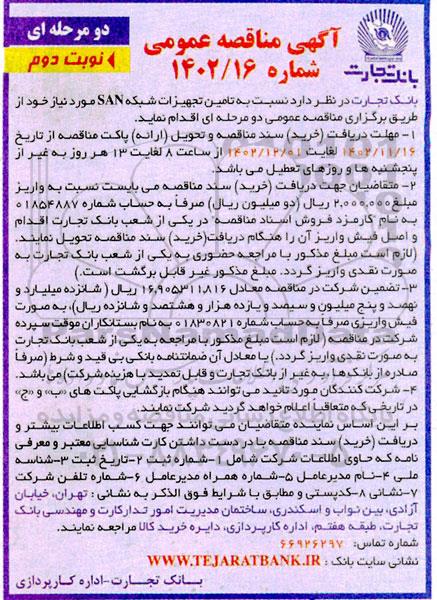 دو مرحله ای
نوبت دوم
آگهی مناقصه عمومی
شماره ۱۴۰۲/۱۶
بانک تجارت
بانک تجارت در نظر دارد نسبت به تامین تجهیزات شبکه SAN مورد نیاز خود از
طریق برگزاری مناقصه عمومی دو مرحله ای اقدام نماید.
۱- مهلت دریافت (خرید) سند مناقصه و تحویل (ارائه) پاکت مناقصه از تاریخ
۱۴۰۲/۱۱/۱۶ لغایت ۱۴۰۲/۱۲/۰۱ از ساعت ۸ لغایت ۱۳ هر روز به غیر از
پنجشنبه ها و روزهای تعطیل می باشد.
۲- متقاضیان جهت دریافت (خرید) سند مناقصه می بایست نسبت به واریز
مبلغ ۲,۰۰۰,۰۰۰ ریال (دو میلیون ریال) صرفاً به حساب شماره ۰۱۸۵۴۸۸۷
به نام "کارمزد فروش اسناد مناقصه" در یکی از شعب بانک تجارت اقدام
و اصل فیش واریز آن را هنگام دریافت(خرید) سند مناقصه تحویل نمایند.
(لازم است مبلغ مذکور با مراجعه حضوری به یکی از شعب بانک تجارت به
صورت نقدی واریز گردد. مبلغ مذکور غیر قابل برگشت است.)
۳-تضمین شرکت در مناقصه معادل ۱۶,۹۰۵,۳۱۱,۸۱۶ ریال (شانزده میلیارد و
نهصد و پنج میلیون و سیصد و یازده هزار و هشتصد و شانزده ریال)، به صورت
فیش واریزی صرفاً به حساب شماره ۰۱۸۳۰۸۲۱ به نام بستانکاران موقت سپرده
شرکت در مناقصه (لازم است مبلغ مذکور با مراجعه به یکی از شعب بانک تجارت
به صورت نقدی واریز گردد.) یا معادل آن ضمانتنامه بانکی بی قید و شرط (صرفاً
صادره از بانک ها، به غیر از بانک تجارت و قابل تمدید با هزینه شرکت) می باشد.
۴- شرکت کنندگان مورد تائید می توانند هنگام بازگشایی پاکت های «ب» و «ج»
در تاریخی که متعاقباً اعلام خواهد گردید شرکت نمایند.
بر این اساس نماینده متقاضیان می توانند جهت کسب اطلاعات بیشتر و
دریافت (خرید) سند مناقصه با در دست داشتن کارت شناسایی معتبر و معرفی
نامه که حاوی اطلاعات شرکت شامل ۱-شماره ثبت ۲-تاریخ ثبت ۳-شناسه
ملی ۴-نام مدیرعامل ۵-شماره همراه مدیرعامل ۶-شماره تلفن شرکت
۷-نشانی ۸-کدپستی و مطابق با شرایط فوق الذکر به نشانی: تهران، خیابان
آزادی، بین نواب و اسکندری، ساختمان مدیریت امور تدارکات و مهندسی بانک
تجارت، طبقه هفتم، اداره کارپردازی، دایره خرید کالا مراجعه نمایند.
شماره تماس: ۶۶۹۲۶۲۹۷
نشانی سایت بانک: WWW.TEJARATBANK.IR
بانک تجارت-اداره کارپردازی